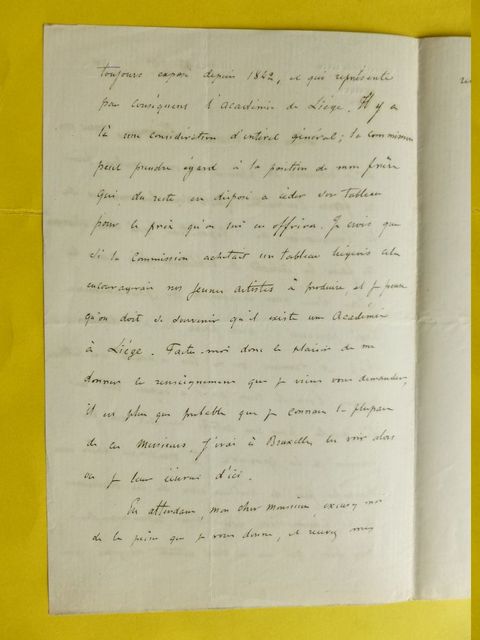 toujours exposé depuis 1842, et qui représente
par conséquent l'académie de Liége. Il y a
là une considération d'intérêt général; la commission
peut prendre égard à la position de mon frère
qui, du reste, est disposé à céder son tableau
pour le prix qu'on lui en offrira. Je crois que
si la Commission achetait un tableau liégeois cela
encouragerait nos jeunes artistes à produire, et je pense
qu'on doit se souvenir qu'il existe une Académie
à Liége. Faites-moi donc le plaisir de me
donner le renseignement que je viens vous demander,
il est plus que probable que je connais la plupart
de ces Messieurs. J'irai à Bruxelles les voir alors
ou je leur écrirai d'ici.
En attendant, mon cher Monsieur, excusez moi
de la peine que je vous donne, et recevez mes